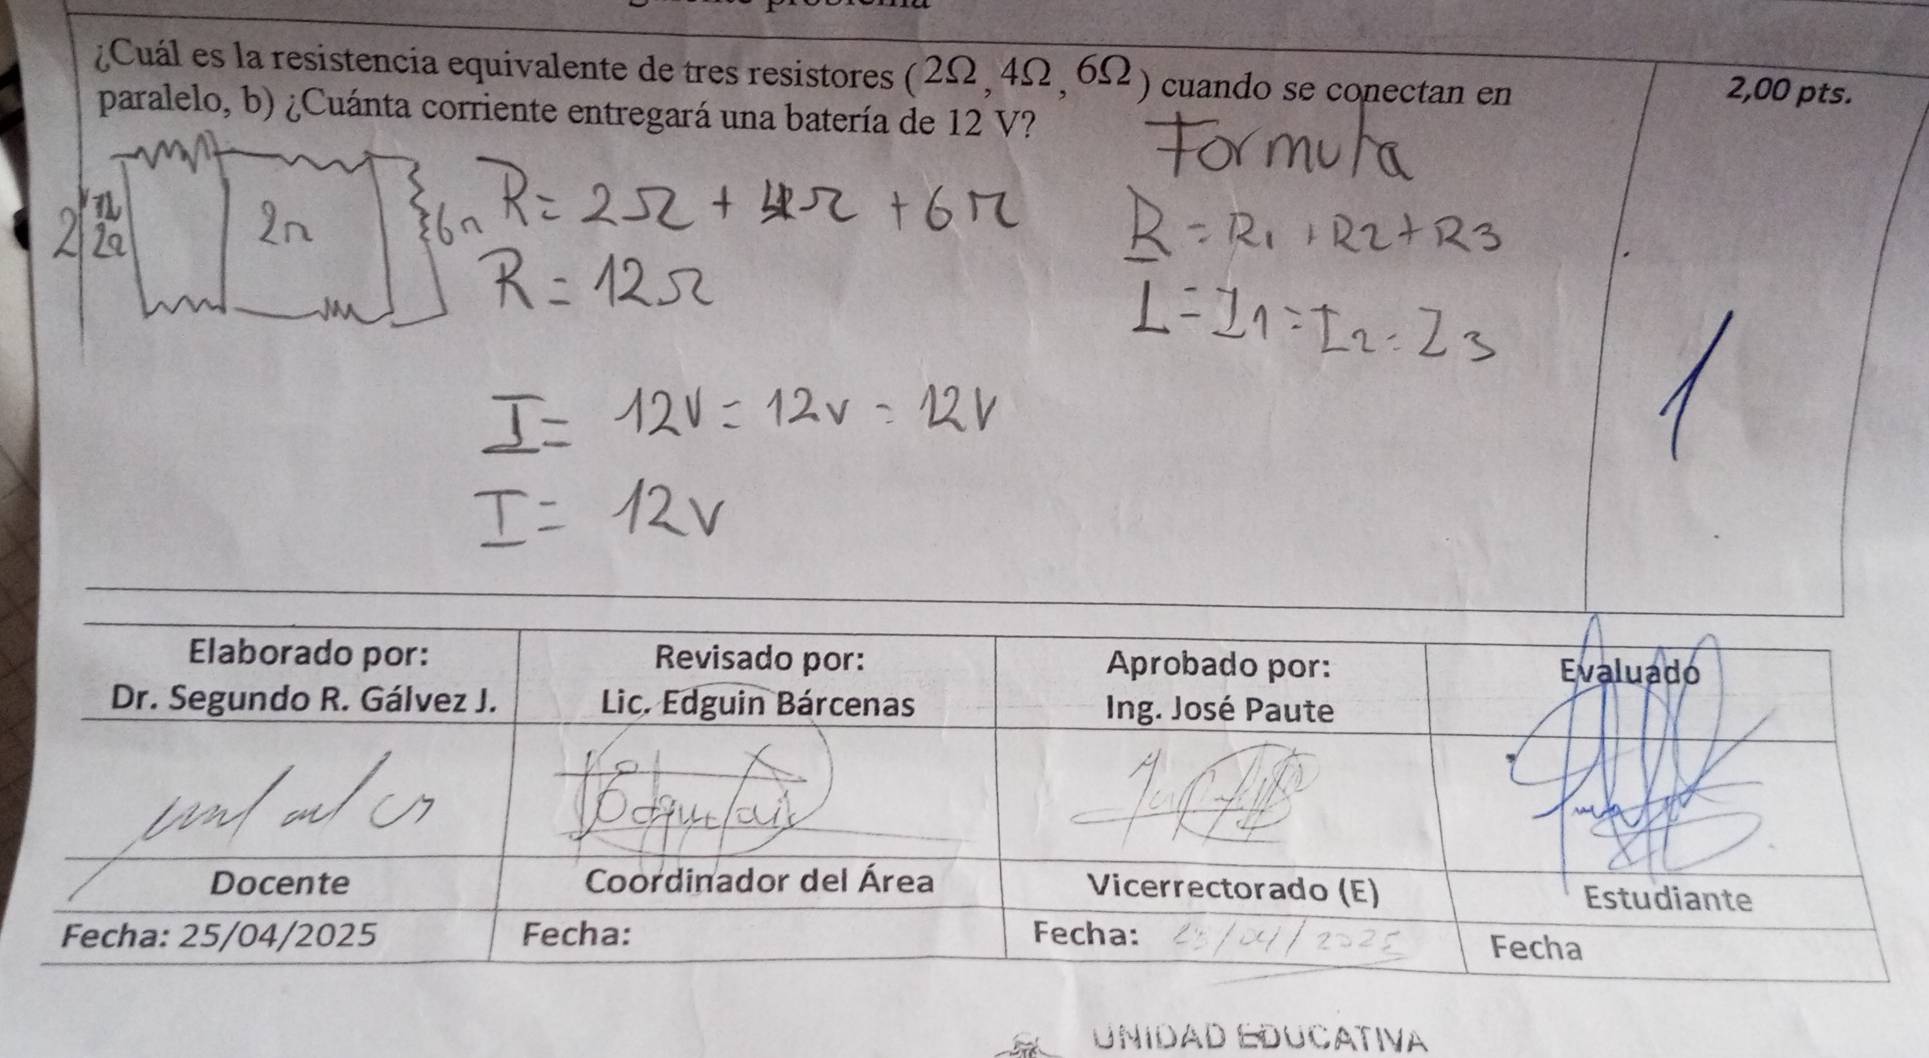 ¿Cuál es la resistencia equivalente de tres resistores (2Ω, 4Ω, 6Ω) cuando se conectan en
2,00 pts.
paralelo, b) ¿Cuánta corriente entregará una batería de 12 V?
Formula
2Ω
6Ω
R= 2Ω + 4Ω + 6Ω
R = R1 + R2 + R3
R = 12Ω
I = I1 = I2 = I3
1
I = 12V = 12V = 12V
I = 12V
Elaborado por:
Dr. Segundo R. Gálvez J.
Revisado por:
Lic. Edguin Bárcenas
Aprobado por:
Ing. José Paute
Evaluado
Docente
Coordinador del Área
Vicerrectorado (E)
Estudiante
Fecha: 25/04/2025
Fecha:
Fecha: 25/04/2025
Fecha
UNIDAD EDUCATIVA